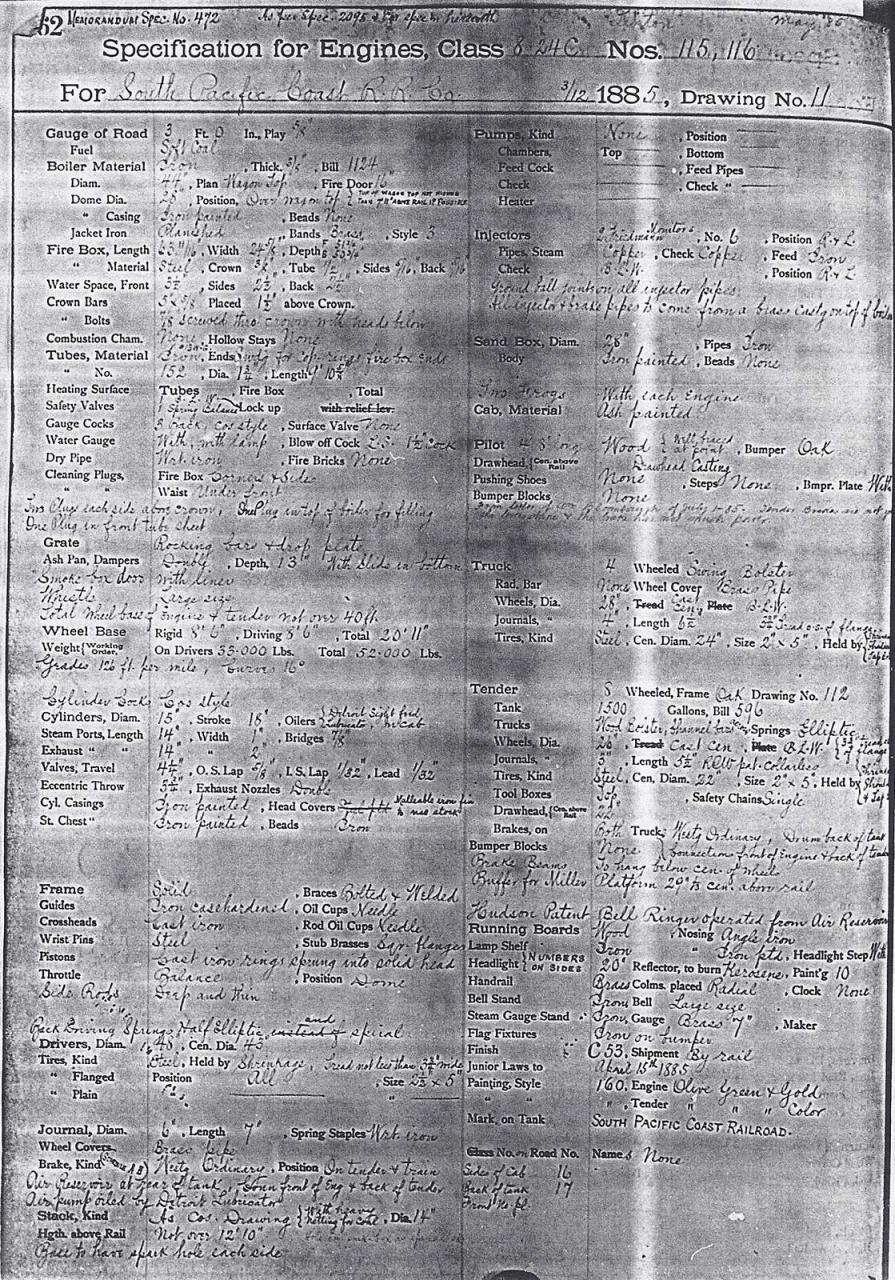 62 MEMORANDUM SPEC. No. 472 As per Spec. 2095
Specification for Engines, Class 8 24 C Nos. 115, 116
For South Pacific Coast R.R. Co. 3/12 1885, Drawing No. 11
Gauge of Road 3 Ft. 0 In., Play 5/8"
Fuel Soft Coal
Boiler Material Iron, Thick., Bill 1124
Diam. 44, Plan Wagon Top, Fire Door 16"
Dome Dia. 28", Position, Over wagon top
" Casing Iron painted, Beads None
Jacket Iron Planished, Bands Brass, Style 3
Fire Box, Length, Width, Depth
" Material Steel, Crown, Tube, Sides, Back
Water Space, Front, Sides 2½, Back 2½
Crown Bars Placed 1½ above Crown.
" Bolts 7/8 screwed thro crown with heads below
Combustion Cham. None, Hollow Stays None
Tubes, Material Iron, Ends fire box ends
" No. 152, Dia., Length
Heating Surface Tubes Fire Box Total
Safety Valves Lock up with relief lev.
Gauge Cocks 3 Cos style, Surface Valve None
Water Gauge With, with lamp, Blow off Cock 1½" Cock
Dry Pipe Wrt. iron, Fire Bricks None
Cleaning Plugs, Fire Box Corners & Sides
" Waist Under Front
Two Plugs each side above crown, One Plug in top of boiler for filling
One Plug in front tube sheet
Grate Rocking bars & drop plate
Ash Pan, Dampers Double, Depth, 13" With Slide in bottom
Smoke box door With liner
Whistle Large size
Total Wheel base of Engine & tender not over 40 ft.
Wheel Base Rigid 8' 6", Driving 8' 6", Total 20' 11"
Weight { Working Order. On Drivers 33.000 Lbs. Total 52.000 Lbs.
Grades 126 ft. per mile, Curves 16°
Cylinder Cocks Cos style
Cylinders, Diam. 15", Stroke 18", Oilers { Detroit Sight feed Lubricator in Cab
Steam Ports, Length 14", Width 1", Bridges 7/8"
Exhaust " " 14" " 2"
Valves, Travel 4½", O. S. Lap 5/8", I. S. Lap 1/32", Lead 1/32"
Eccentric Throw, Exhaust Nozzles Double
Cyl. Casings Iron painted, Head Covers Malleable iron
St. Chest " Iron painted, Beads Iron
Frame Solid, Braces Bolted & Welded
Guides Iron casehardened, Oil Cups Needle
Crossheads Cast iron Rod Oil Cups Needle
Wrist Pins Steel, Stub Brasses Sqr. flanges
Pistons Cast iron rings sprung into solid head
Throttle Balance, Position Dome
Side Rods Deep and thin
Back Driving Springs Half Elliptic and instead of spiral
Drivers, Diam. 48, Cen. Dia. 43
Tires, Kind Steel, Held by Shrinkage, Tread not less than
" Flanged Position All, Size 2½ x 5"
" Plain "
Journal, Diam. 6", Length 7", Spring Staples Wrt. iron
Wheel Covers Brass pipe
Brake, Kind Westg Ordinary, Position On tender & train
Air Reservoir at rear of tank, Down front of Eng & back of tender
Air pump oiled by Detroit Lubricator
Stack, Kind As Cos. Drawing { With heavy netting for coal, Dia. 14"
Hgth. above Rail Not over 12' 10"
Base to have spark hole each side
Pumps, Kind None, Position
Chambers, Top, Bottom
Feed Cock, Feed Pipes
Check, Check "
Heater
Injectors 2 Friedmann Monitors, No. 6, Position R. & L.
Pipes, Steam Copper, Check Copper, Feed Iron
Check B.L.W., Position R & L
Ground ball joints on all injector pipes
All injector & brass pipes to come from a brass casting on top of boiler
Sand Box, Diam. 28", Pipes Iron
Body Iron painted, Beads None
Two Frogs With each Engine
Cab, Material Ash painted
Pilot 4' 8" long Wood { Well braced at point, Bumper Oak
Drawhead, { Cen. above Rail Drawhead Casting
Pushing Shoes None, Steps None, Bmpr. Plate With
Bumper Blocks None
Truck 4 Wheeled Swing Bolster
Rad. Bar None Wheel Cover Brass Pipe
Wheels, Dia. 28, Tread Cast Cen., Plate B.L.W.
Journals, " 4", Length 6½"
Tires, Kind Steel, Cen. Diam. 24", Size 2" x 5", Held by
Tender 8 Wheeled, Frame Oak Drawing No. 112
Tank 1500 Gallons, Bill 596
Trucks Wood Bolster, Channel bars, Springs Elliptic
Wheels, Dia. 26", Tread Cast Cen., Plate B.L.W.
Journals, " 3", Length 5½
Tires, Kind Steel, Cen. Diam. 22", Size 2" x 5", Held by
Tool Boxes Top, Safety Chains Single
Drawhead, { Cen. above Rail 22"
Brakes, on Both Trucks Westg Ordinary, Drum back of tank
Bumper Blocks None { Connections front of Engine & back of tender
Brake Beams To hang below cen. of wheels
Buffer for Miller Platform cen. above rail
Hudson Patent Bell Ringer operated from Air Reservoir
Running Boards Wood, Nosing Angle iron
Lamp Shelf Iron " Iron ptd, Headlight Step With
Headlight { NUMBERS ON SIDES 20" Reflector, to burn Kerosene, Paint'g 10
Handrail Brass Colms. placed Radial, Clock None
Bell Stand Iron, Bell Large size
Steam Gauge Stand Iron, Gauge Brass 7", Maker
Flag Fixtures Iron on bumper
Finish C 53, Shipment By rail
Junior Laws to April 15th 1885
Painting, Style 160, Engine Olive Green & Gold
" " ", Tender " " " Color
Mark, on Tank SOUTH PACIFIC COAST RAILROAD.
Class No. on Road No. Names None
Sides of Cab 16
Back of tank 17
Front No. pl.